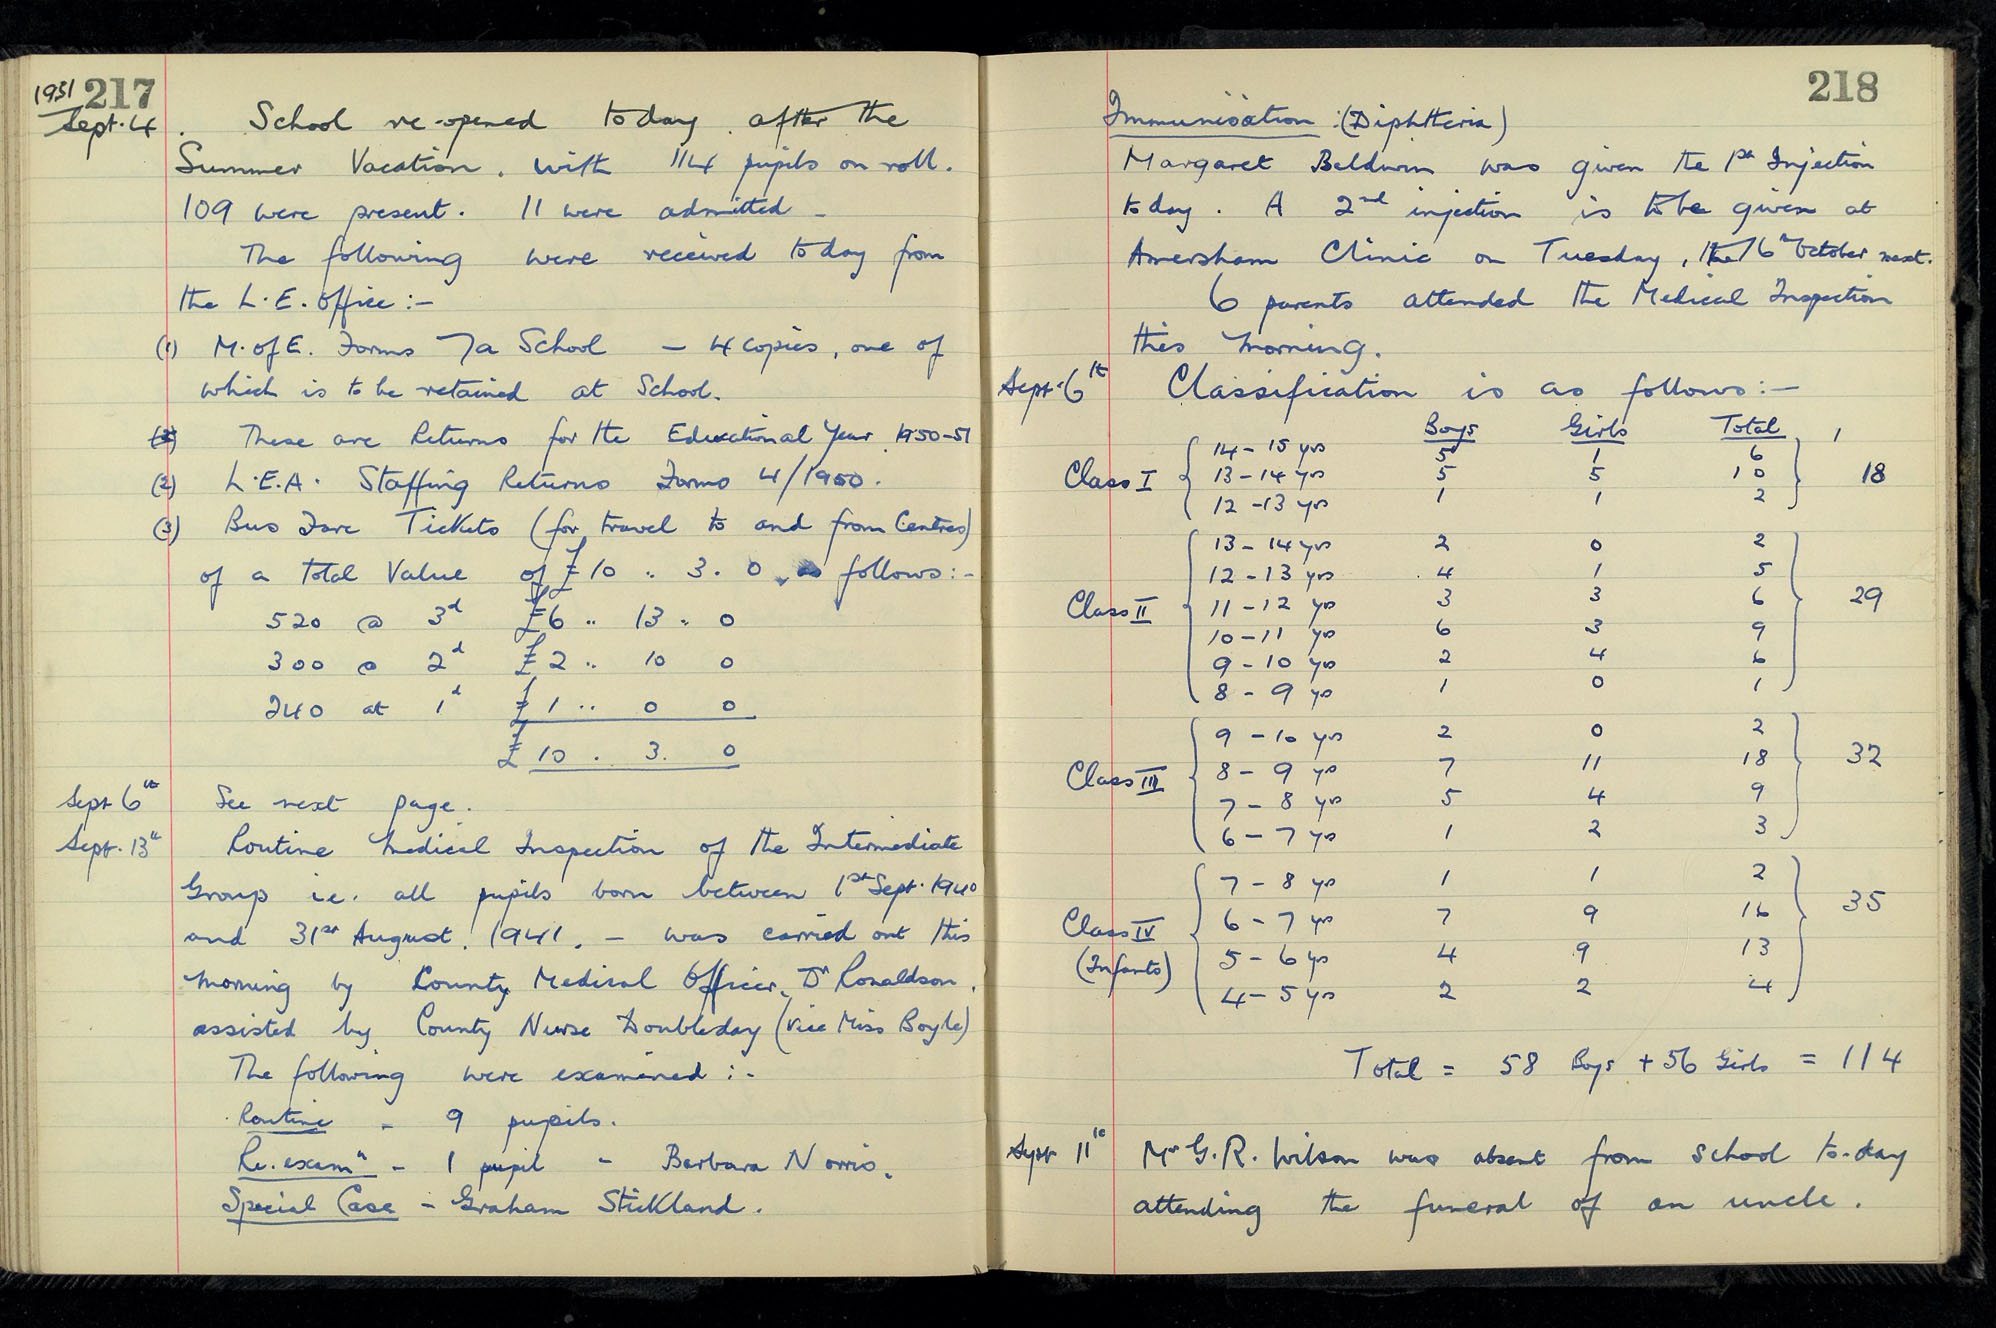 1951 217
Sept. 4. School re-opened today after the
Summer Vacation, with 114 pupils on roll.
109 were present. 11 were admitted -
The following were received today from
the L.E. Office :-
(1) M. of E. Forms 7a School - 4 copies, one of
which is to be retained at School.
(2) These are Returns for the Educational Year 1950-51
(2) L.E.A. Staffing Returns Forms 4/1950.
(3) Bus Fare Tickets (for travel to and from Centres)
of a Total Value of £10 .. 3 . 0, as follows :-
520 @ 3d £6 .. 13 .. 0
300 @ 2d £2 .. 10 0
240 at 1d £1 .. 0 0
£10 . 3. 0
Sept 6th See next page.
Sept. 13th Routine Medical Inspection of the Intermediate
Group i.e. all pupils born between 1st Sept. 1940
and 31st August, 1941, - was carried out this
morning by County Medical Officer, Dr Ronaldson,
assisted by County Nurse Doubleday (vice Miss Boyle)
The following were examined :-
Routine - 9 pupils.
Re.examn - 1 pupil - Barbara Norris.
Special Case - Graham Stickland.
218
Immunisation : (Diphtheria)
Margaret Baldwin was given the 1st Injection
today. A 2nd injection is to be given at
Amersham Clinic on Tuesday, the 16th October next.
6 parents attended the Medical Inspection
this morning.
Sept. 6th Classification is as follows :-
Boys Girls Total
Class I 14 - 15 yrs 5 1 6
13 - 14 yrs 5 5 10 18
12 - 13 yrs 1 1 2
13 - 14 yrs 2 0 2
12 - 13 yrs 4 1 5
Class II 11 - 12 yrs 3 3 6 29
10 - 11 yrs 6 3 9
9 - 10 yrs 2 4 6
8 - 9 yrs 1 0 1
9 - 10 yrs 2 0 2
Class III 8 - 9 yrs 7 11 18 32
7 - 8 yrs 5 4 9
6 - 7 yrs 1 2 3
7 - 8 yrs 1 1 2
Class IV 6 - 7 yrs 7 9 16 35
(Infants) 5 - 6 yrs 4 9 13
4 - 5 yrs 2 2 4
Total = 58 Boys + 56 Girls = 114
Sept 11th Mr G.R. Wilson was absent from school to-day
attending the funeral of an uncle.